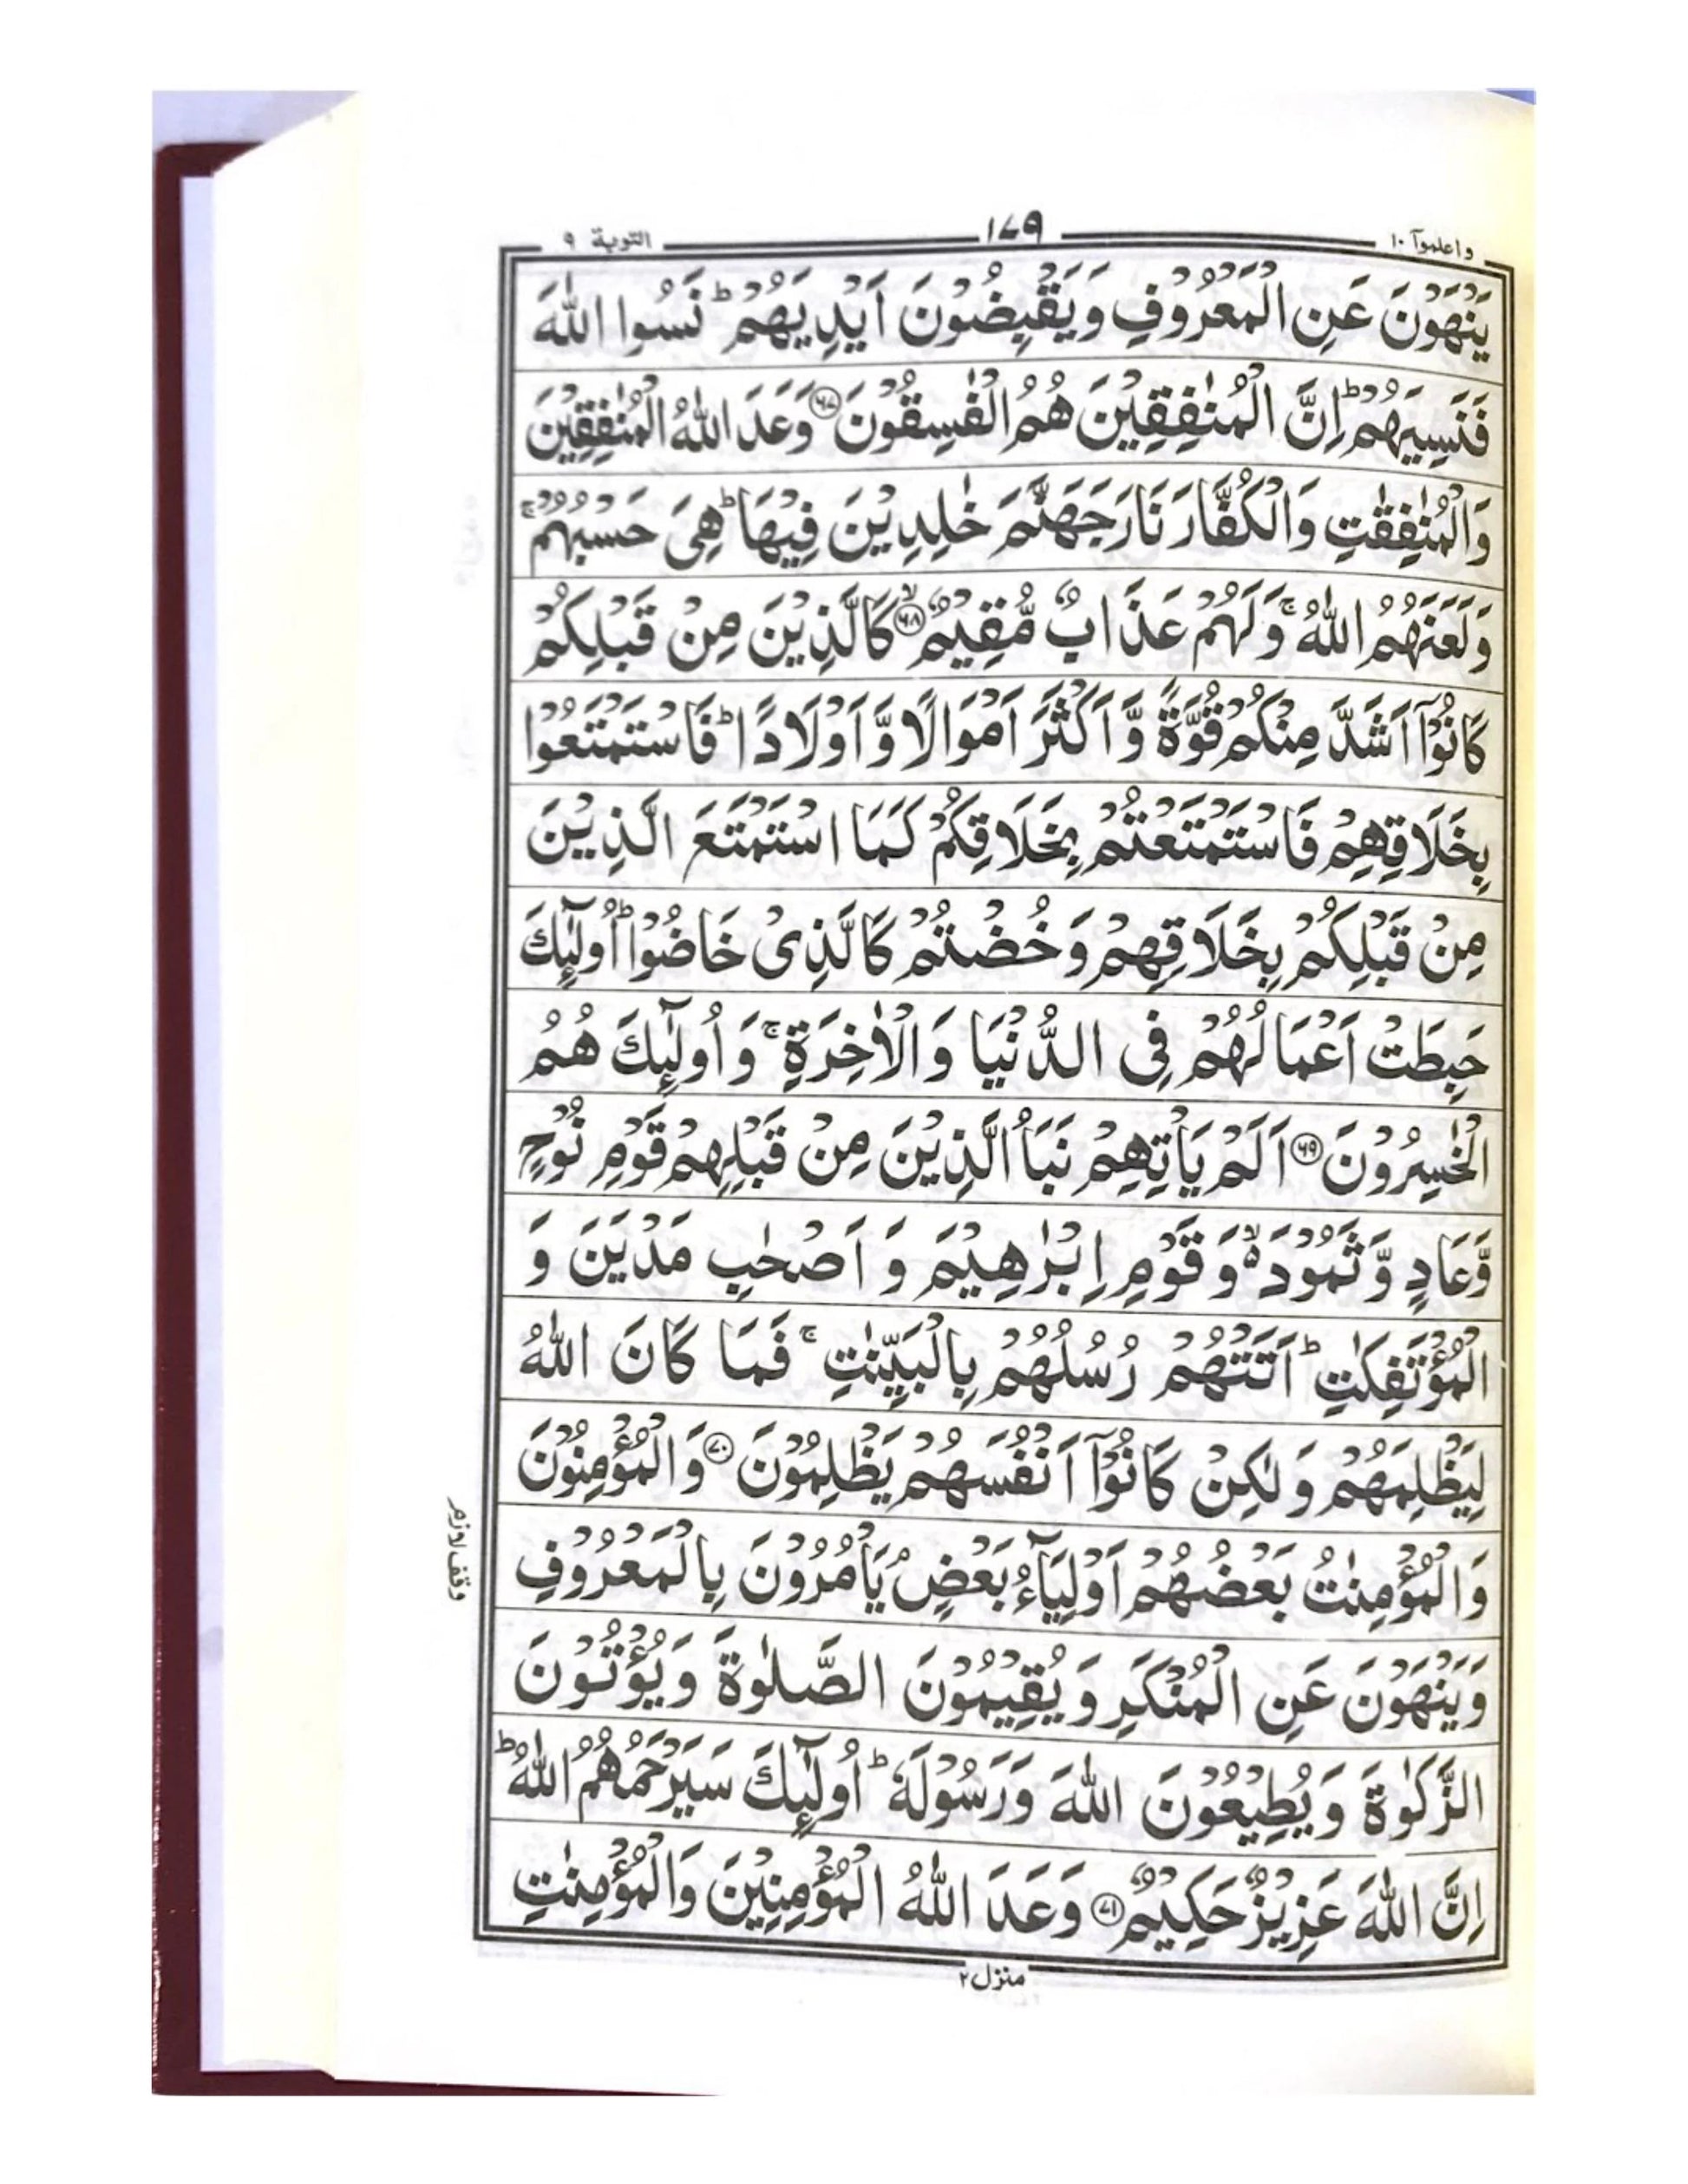 واعلموآ ١٠ ١٧٩ التوبة ٩
يَنْهَوْنَ عَنِ الْمَعْرُوْفِ وَيَقْبِضُوْنَ اَيْدِيَهُمْ ؕ نَسُوا اللّٰهَ
فَنَسِيَهُمْ ؕ اِنَّ الْمُنٰفِقِيْنَ هُمُ الْفٰسِقُوْنَ ﴿۶۷﴾ وَعَدَ اللّٰهُ الْمُنٰفِقِيْنَ
وَالْمُنٰفِقٰتِ وَالْكُفَّارَ نَارَ جَهَنَّمَ خٰلِدِيْنَ فِيْهَا ؕ هِيَ حَسْبُهُمْ ۚ
وَلَعَنَهُمُ اللّٰهُ ۚ وَلَهُمْ عَذَابٌ مُّقِيْمٌ ۙ﴿۶۸﴾ كَالَّذِيْنَ مِنْ قَبْلِكُمْ
كَانُوْۤا اَشَدَّ مِنْكُمْ قُوَّةً وَّاَكْثَرَ اَمْوَالًا وَّاَوْلَادًا ؕ فَاسْتَمْتَعُوْا
بِخَلَاقِهِمْ فَاسْتَمْتَعْتُمْ بِخَلَاقِكُمْ كَمَا اسْتَمْتَعَ الَّذِيْنَ
مِنْ قَبْلِكُمْ بِخَلَاقِهِمْ وَخُضْتُمْ كَالَّذِيْ خَاضُوْا ؕ اُولٰٓئِكَ
حَبِطَتْ اَعْمَالُهُمْ فِي الدُّنْيَا وَالْاٰخِرَةِ ۚ وَاُولٰٓئِكَ هُمُ
الْخٰسِرُوْنَ ﴿۶۹﴾ اَلَمْ يَاْتِهِمْ نَبَاُ الَّذِيْنَ مِنْ قَبْلِهِمْ قَوْمِ نُوْحٍ
وَّعَادٍ وَّثَمُوْدَ ۙ۬ وَقَوْمِ اِبْرٰهِيْمَ وَاَصْحٰبِ مَدْيَنَ وَ
الْمُؤْتَفِكٰتِ ؕ اَتَتْهُمْ رُسُلُهُمْ بِالْبَيِّنٰتِ ۚ فَمَا كَانَ اللّٰهُ
لِيَظْلِمَهُمْ وَلٰكِنْ كَانُوْۤا اَنْفُسَهُمْ يَظْلِمُوْنَ ﴿۷۰﴾ وَالْمُؤْمِنُوْنَ
وَالْمُؤْمِنٰتُ بَعْضُهُمْ اَوْلِيَآءُ بَعْضٍ ۘ يَاْمُرُوْنَ بِالْمَعْرُوْفِ
وقف لازم
وَيَنْهَوْنَ عَنِ الْمُنْكَرِ وَيُقِيْمُوْنَ الصَّلٰوةَ وَيُؤْتُوْنَ
الزَّكٰوةَ وَيُطِيْعُوْنَ اللّٰهَ وَرَسُوْلَهٗ ؕ اُولٰٓئِكَ سَيَرْحَمُهُمُ اللّٰهُ ؕ
اِنَّ اللّٰهَ عَزِيْزٌ حَكِيْمٌ ﴿۷۱﴾ وَعَدَ اللّٰهُ الْمُؤْمِنِيْنَ وَالْمُؤْمِنٰتِ
منزل ٢